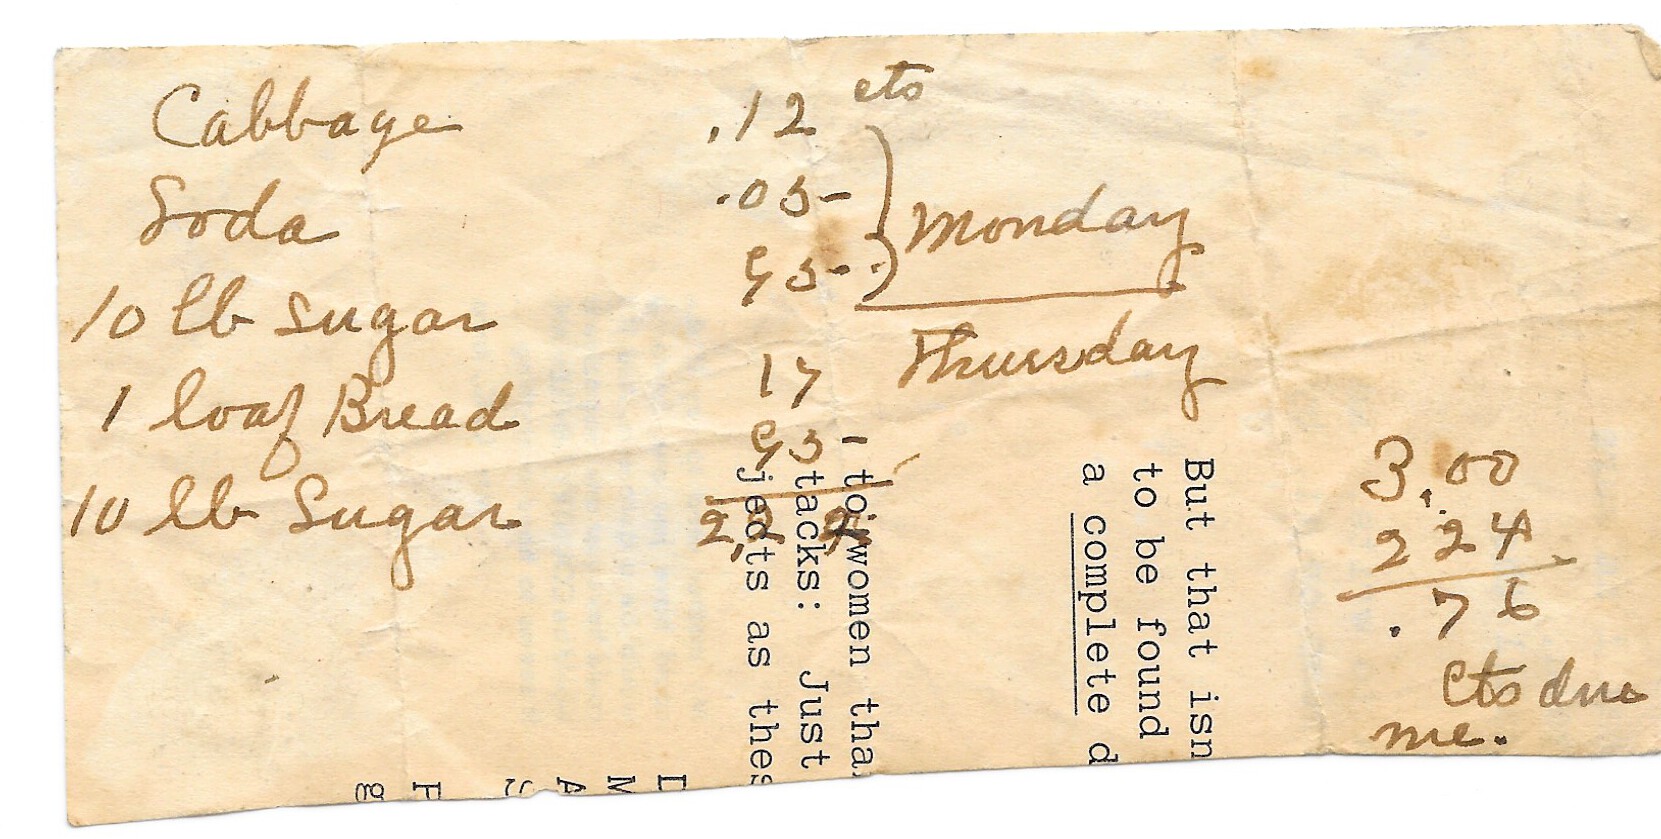 Cabbage .12 cts
Soda .05
10 lb sugar 95
Monday
1 loaf Bread 17
Thursday
10 lb Sugar 95
2,24
3.00
2 24
.76
cts due
me.
But that isn
to be found
a complete d
to women tha
tacks: Just
jects as thes